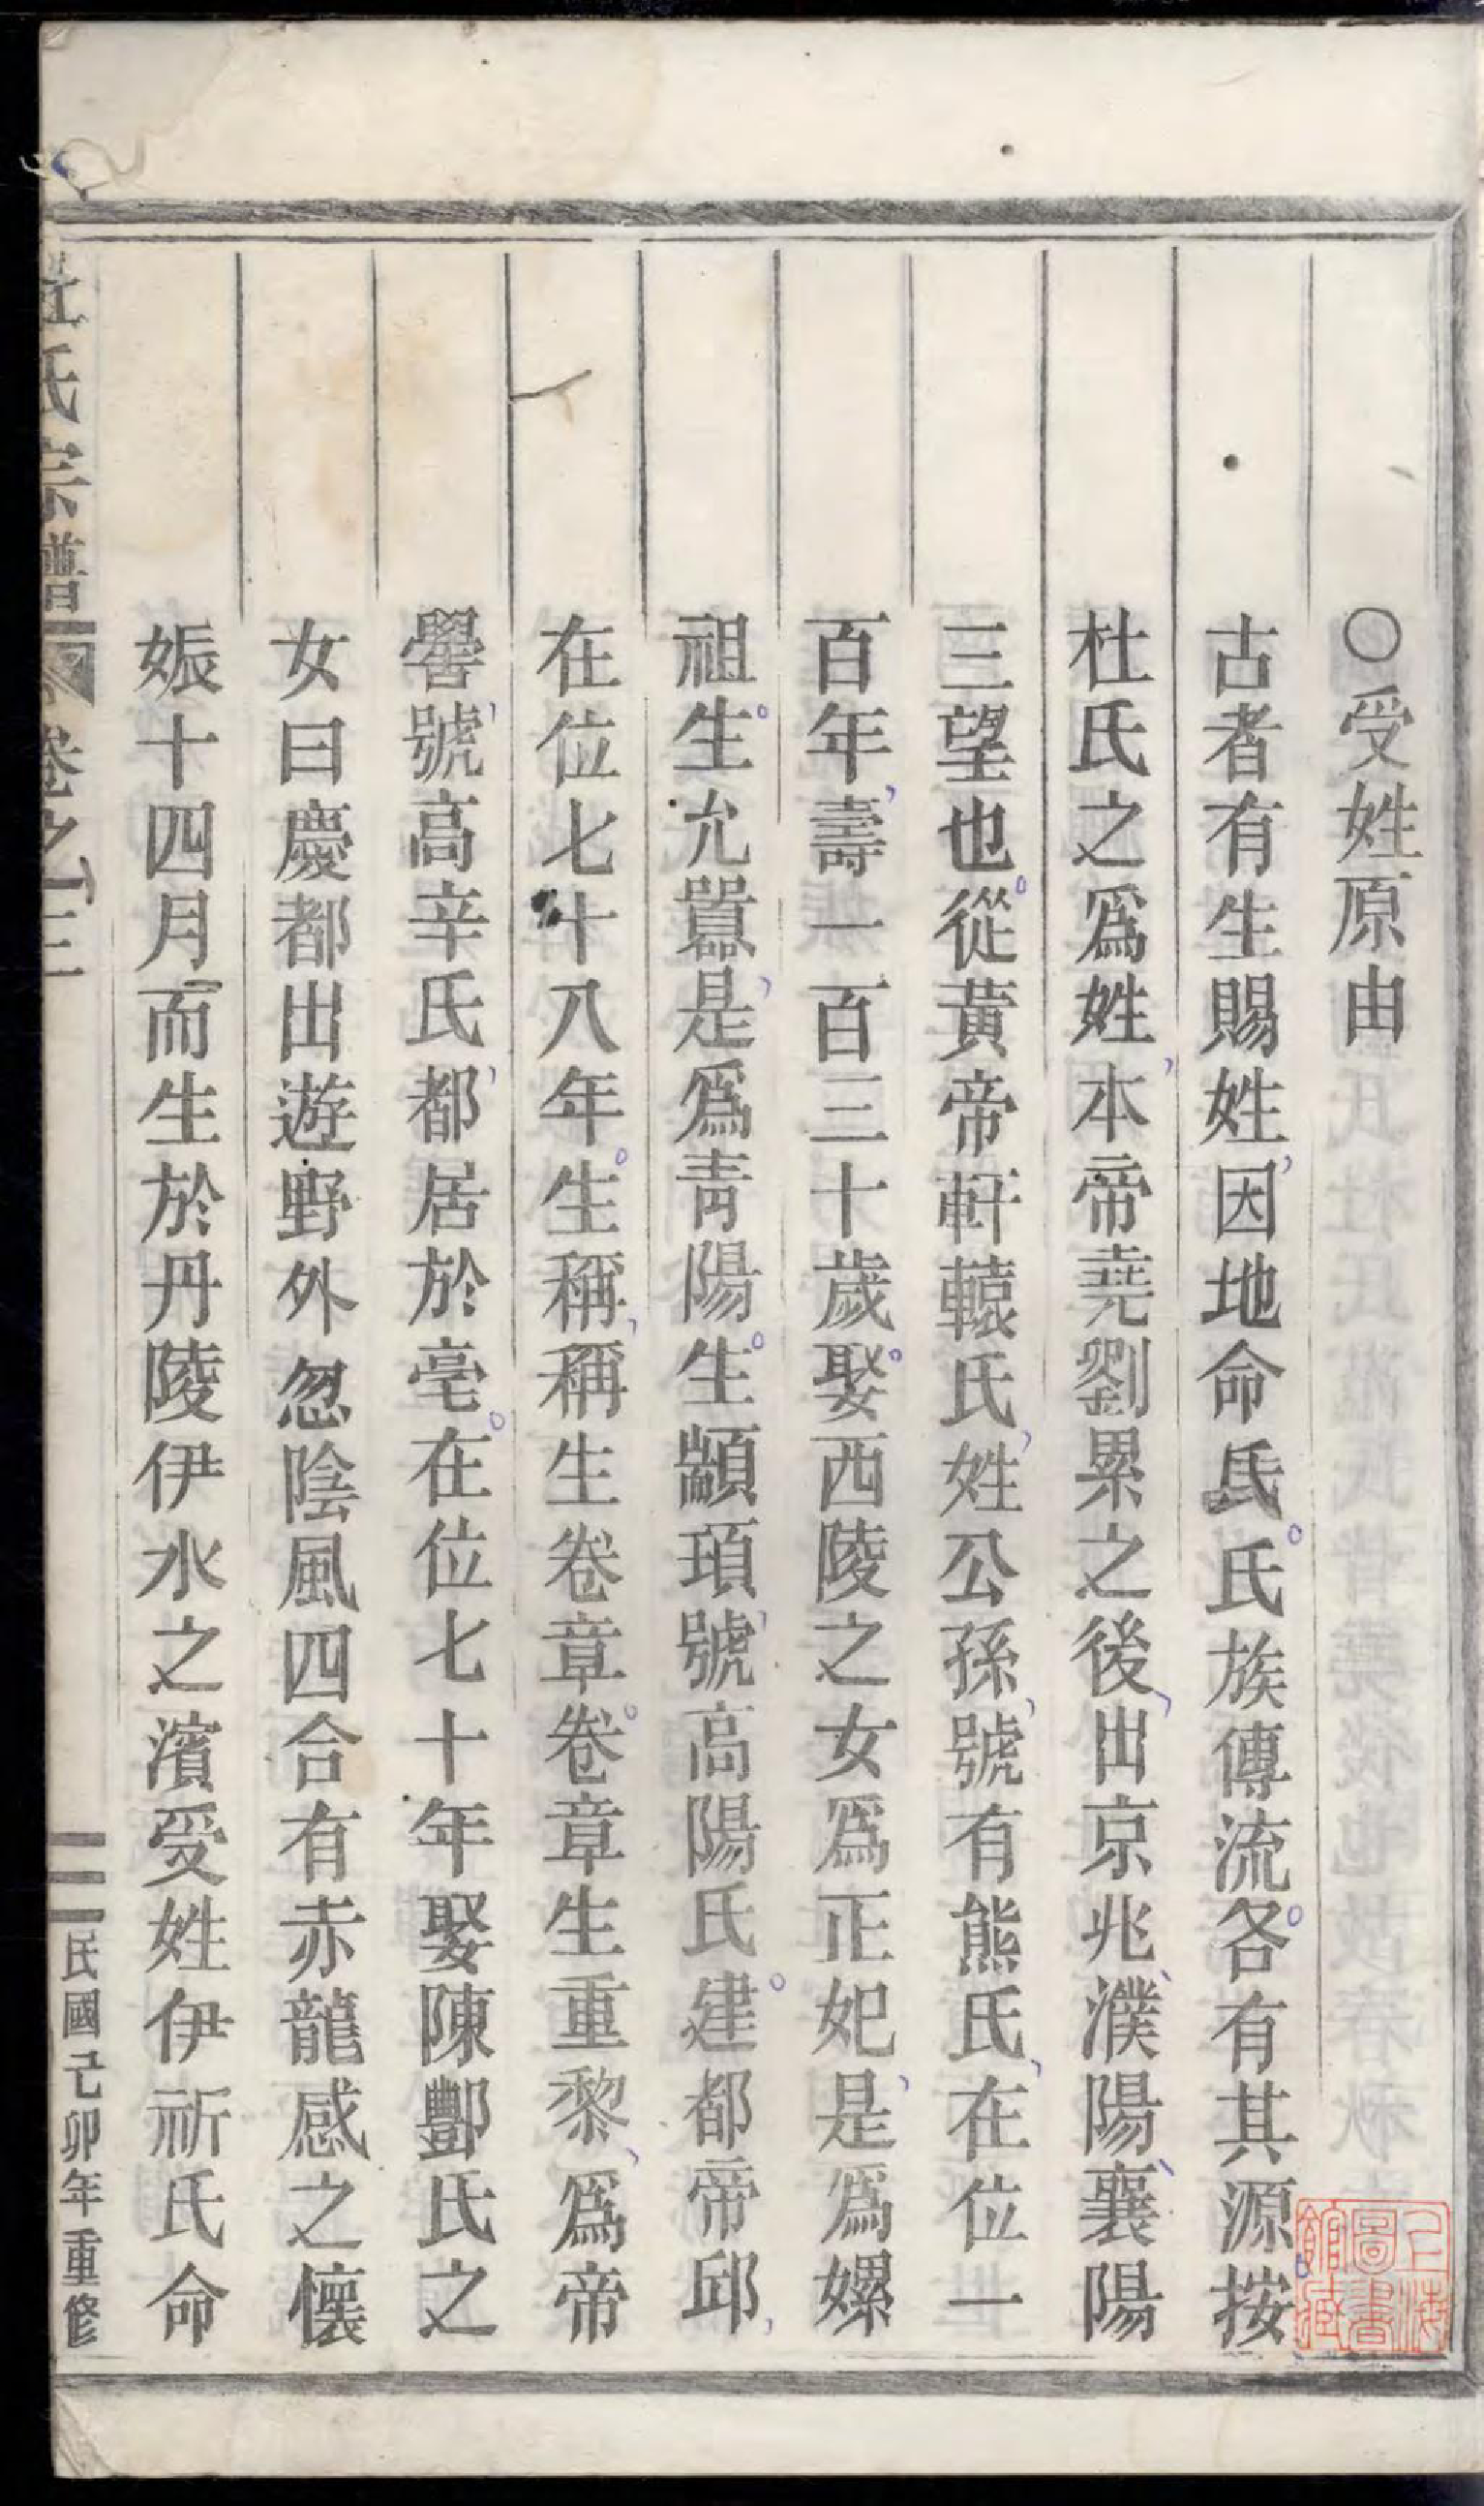 〇受姓原由
古者有生賜姓因地命氏氏族傳流各有其源按
杜氏之爲姓本帝堯劉累之後出京兆濮陽襄陽
三望也從黃帝軒轅氏姓公孫號有熊氏在位一
百年壽一百三十歲娶西陵之女爲正妃是爲嫘
祖生允囂是爲靑陽生顓頊號高陽氏建都帝邱
在位七十八年生稱稱生卷章卷章生重黎爲帝
嚳號高辛氏都居於亳在位七十年娶陳酆氏之
女曰慶都出遊野外忽陰風四合有赤龍感之懷
娠十四月而生於丹陵伊水之濱受姓伊祈氏命
杜氏宗譜 卷之三
民國己卯年重修
上海圖書館藏